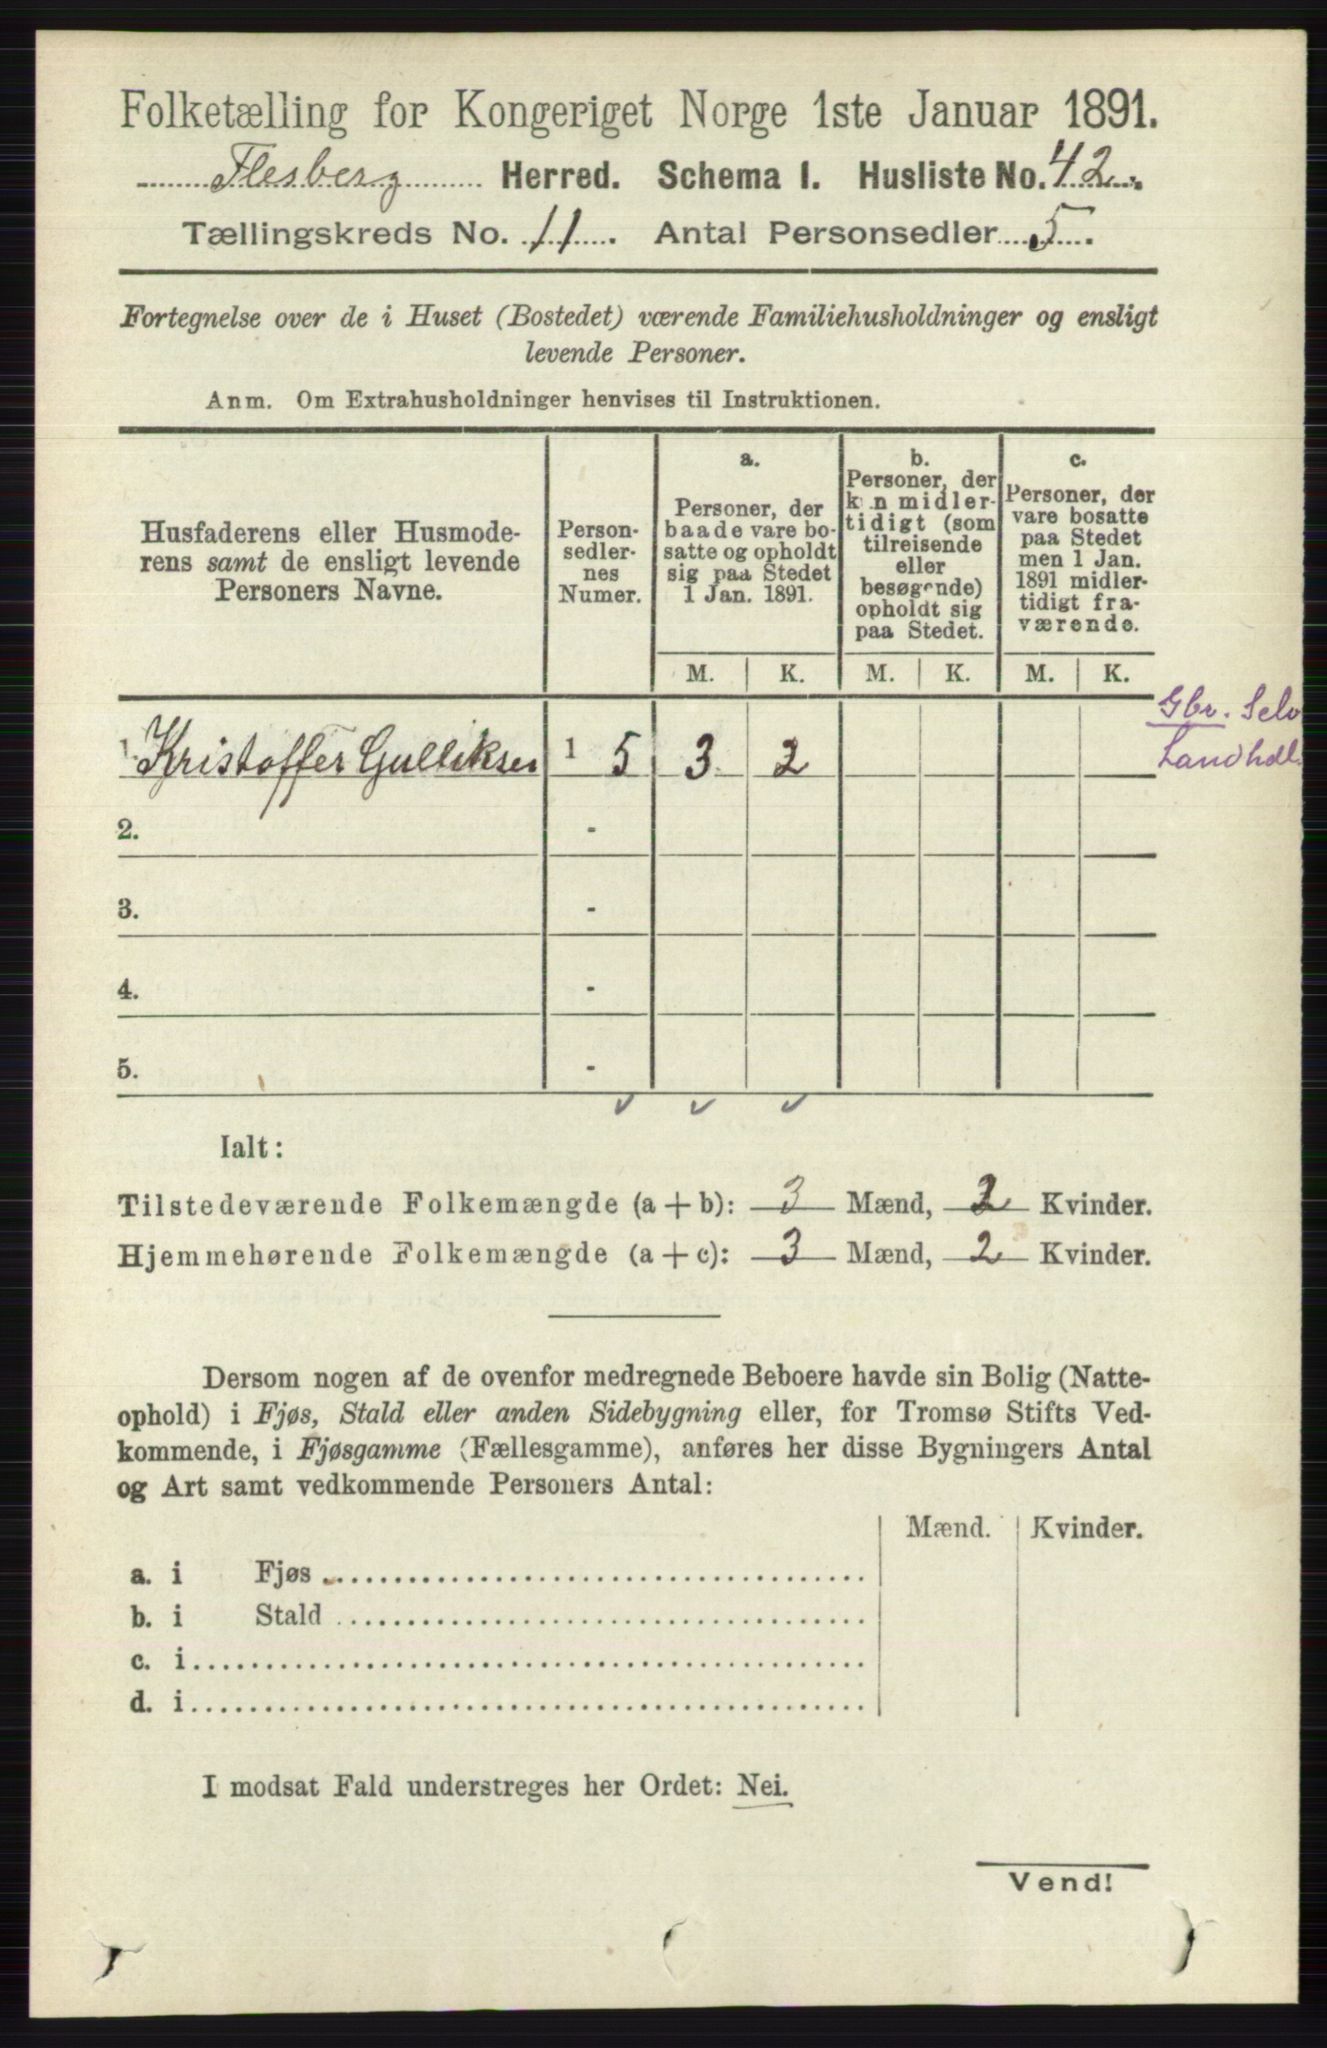 Folketælling for Kongeriget Norge 1ste Januar 1891.
Flesberg Herred. Schema I. Husliste No. 42.
Tællingskreds No. 11. Antal Personsedler 5.
Fortegnelse over de i Huset (Bostedet) værende Familiehusholdninger og ensligt
levende Personer.
Anm. Om Extrahusholdninger henvises til Instruktionen.
Husfaderens eller Husmode-
rens samt de ensligt levende
Personers Navne.
Person-
sedler-
nes
Numer.
a.
Personer, der
baade vare bo-
satte og opholdt
sig paa Stedet
1 Jan. 1891.
b.
Personer, der
kun midler-
tidigt (som
tilreisende
eller
besøgende)
opholdt sig
paa Stedet.
c.
Personer, der
vare bosatte
paa Stedet
men 1 Jan.
1891 midler-
tidigt fra-
værende.
M. K. M. K. M. K.
Gbr. Selv
Landhdl.
1. Kristoffer Gulliksen 1 5 3 2
2. -
3. -
4. -
5. -
Ialt:
Tilstedeværende Folkemængde (a + b): 3 Mænd, 2 Kvinder.
Hjemmehørende Folkemængde (a + c): 3 Mænd, 2 Kvinder.
Dersom nogen af de ovenfor medregnede Beboere havde sin Bolig (Natte-
ophold) i Fjøs, Stald eller anden Sidebygning eller, for Tromsø Stifts Ved-
kommende, i Fjøsgamme (Fællesgamme), anføres her disse Bygningers Antal
og Art samt vedkommende Personers Antal:
Mænd. Kvinder.
a. i Fjøs
b. i Stald
c. i
d. i
I modsat Fald understreges her Ordet: Nei.
Vend!